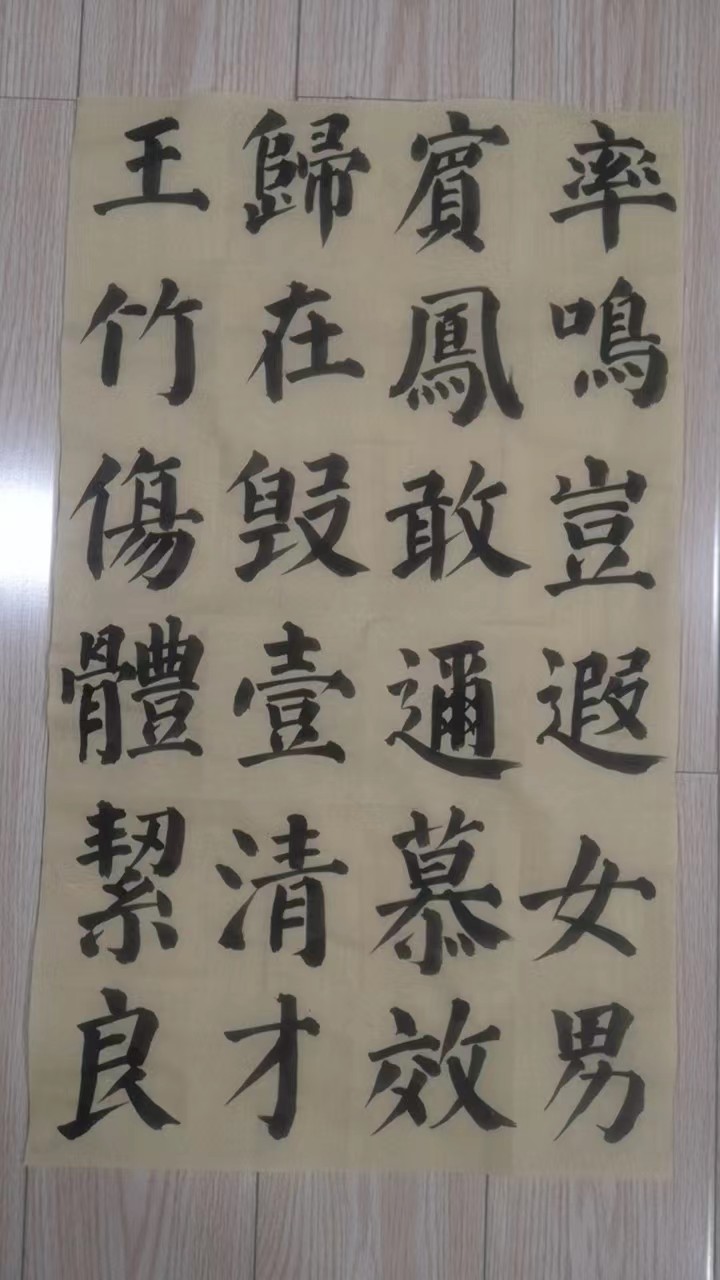 率賓歸王
鳴鳳在竹
豈敢毀傷
遐邇壹體
女慕清絜
男效才良